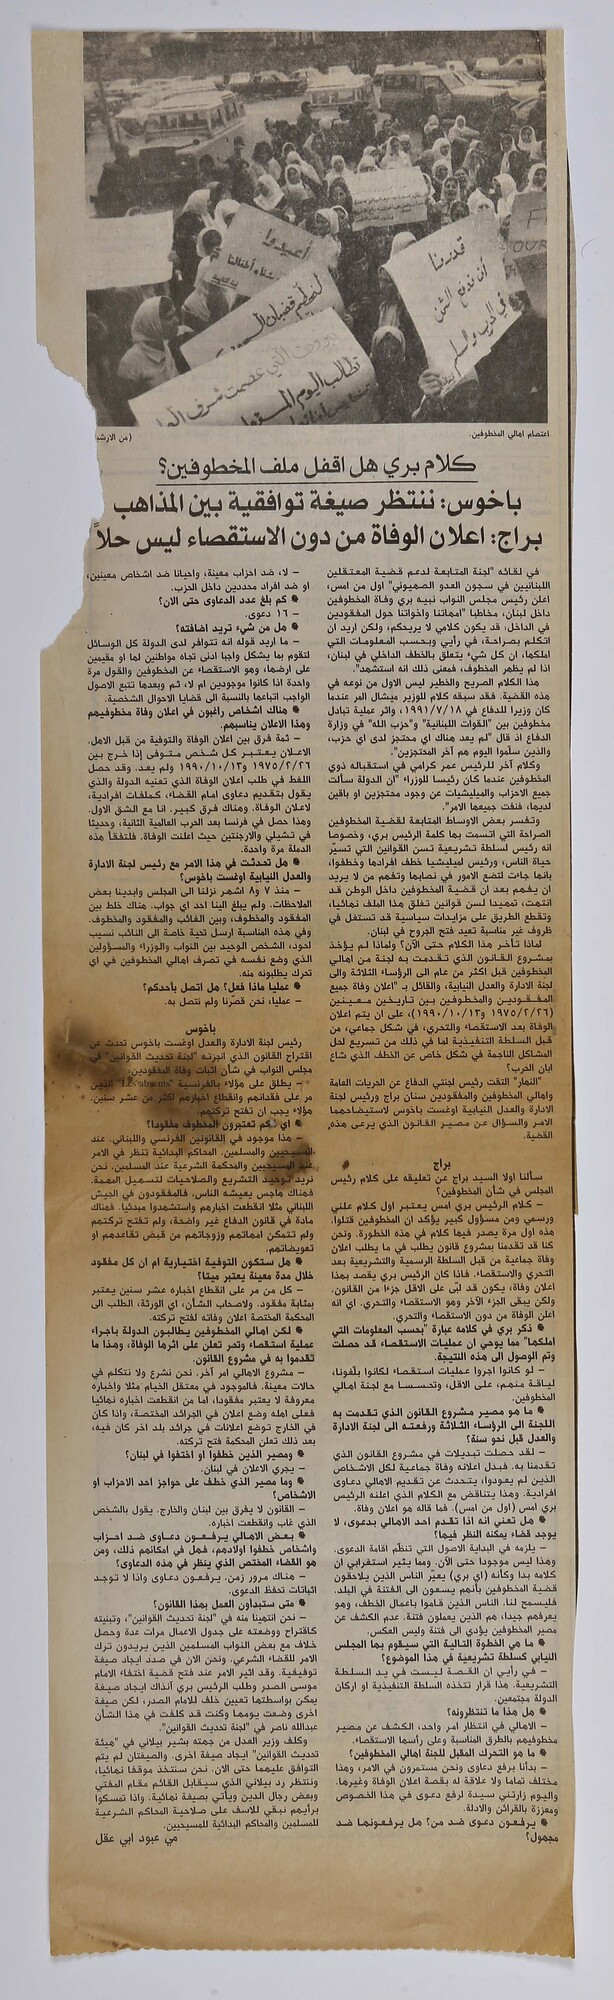 أعيدوا
شتاء أطفالنا
قدرنا
أن ندفع الثمن
في الحرب والسلم
نطالب اليوم
F
OUR
اعتصام اهالي المخطوفين.
(من الارشي
كلام بري هل اقفل ملف المخطوفين؟
باخوس: ننتظر صيغة توافقية بين المذاهب
براج: اعلان الوفاة من دون الاستقصاء ليس حلاً
في لقائه "لجنة المتابعة لدعم قضية المعتقلين
اللبنانيين في سجون العدو الصهيوني" اول من امس،
اعلن رئيس مجلس النواب نبيه بري وفاة المخطوفين
داخل لبنان، مخاطبا "امهاتنا واخواتنا حول المفقودين
في الداخل، قد يكون كلامي لا يريحكم، ولكن اريد ان
اتكلم بصراحة، في رأيي وبحسب المعلومات التي
املكها، ان كل شيء يتعلق بالخطف الداخلي في لبنان،
اذا لم يظهر المخطوف، فمعنى ذلك انه استشهد".
هذا الكلام الصريح والخطير ليس الاول من نوعه في
هذه القضية. فقد سبقه كلام للوزير ميشال المر عندما
كان وزيرا للدفاع في ١٩٩١/٧/١٨، واثر عملية تبادل
مخطوفين بين "القوات اللبنانية" و"حزب الله" في وزارة
الدفاع اذ قال "لم يعد هناك اي محتجز لدى اي حزب،
والذين سلموا اليوم هم آخر المحتجزين".
وكلام آخر للرئيس عمر كرامي في استقباله ذوي
المخطوفين عندما كان رئيسا للوزراء "ان الدولة سألت
جميع الاحزاب والميليشيات عن وجود محتجزين او باقين
لديها، فنفت جميعها الامر".
وتفسر بعض الاوساط المتابعة لقضية المخطوفين
الصراحة التي اتسمت بها كلمة الرئيس بري، وخصوصا
انه رئيس لسلطة تشريعية تسن القوانين التي تسيّر
حياة الناس، ورئيس لميليشيا خطف افرادها وخطفوا،
بانها جاءت لتضع الامور في نصابها وتفهم من لا يريد
ان يفهم بعد ان قضية المخطوفين داخل الوطن قد
انتهت، تمهيدا لسن قوانين تغلق هذا الملف نهائيا،
وتقطع الطريق على مزايدات سياسية قد تستغل في
ظروف غير مناسبة تعيد فتح الجروح في لبنان.
لماذا تأخر هذا الكلام حتى الآن؟ ولماذا لم يؤخذ
بمشروع القانون الذي تقدمت به لجنة من اهالي
المخطوفين قبل اكثر من عام الى الرؤساء الثلاثة والى
لجنة الادارة والعدل النيابية، والقائل بـ "اعلان وفاة جميع
المفقودين والمخطوفين بين تاريخين معينين
(١٩٧٥/٢/٢٦ و١٩٩٠/١٠/١٣)، على ان يتم اعلان
الوفاة بعد الاستقصاء والتحري، في شكل جماعي، من
قبل السلطة التنفيذية لما في ذلك من تسريع لحل
المشاكل الناجمة في شكل خاص عن الخطف الذي شاع
ابان الحرب؟
"النهار" التقت رئيس لجنتي الدفاع عن الحريات العامة
واهالي المخطوفين والمفقودين سنان براج ورئيس لجنة
الادارة والعدل النيابية اوغست باخوس لاستيضاحهما
الامر والسؤال عن مصير القانون الذي يرعى هذه
القضية.
براج
سألنا اولا السيد براج عن تعليقه على كلام رئيس
المجلس في شأن المخطوفين؟
– كلام الرئيس بري امس يعتبر اول كلام علني
ورسمي ومن مسؤول كبير يؤكد ان المخطوفين قتلوا.
هذه اول مرة يصدر فيها كلام في هذه الخطورة. ونحن
كنا قد تقدمنا بمشروع قانون يطلب في ما يطلب اعلان
وفاة جماعية من قبل السلطة الرسمية والتشريعية بعد
التحري والاستقصاء. فاذا كان الرئيس بري يقصد بهذا
اعلان وفاة، يكون قد لبّى على الاقل جزءا من القانون.
ولكن يبقى الجزء الآخر وهو الاستقصاء والتحري. اي انه
اعلن الوفاة من دون الاستقصاء والتحري.
● ذكر بري في كلامه عبارة "بحسب المعلومات التي
املكها" مما يوحي ان عمليات الاستقصاء قد حصلت
وتم الوصول الى هذه النتيجة.
– لو كانوا اجروا عمليات استقصاء لكانوا بلّغونا،
لياقة منهم، على الاقل، وتحسسا مع لجنة اهالي
المخطوفين.
● ما هو مصير مشروع القانون الذي تقدمت به
اللجنة الى الرؤساء الثلاثة ورفعته الى لجنة الادارة
والعدل قبل نحو سنة؟
– لقد حصلت تبديلات في مشروع القانون الذي
تقدمنا به. فبدل اعلانه وفاة جماعية لكل الاشخاص
الذين لم يعودوا، يتحدث عن تقديم الاهالي دعاوى
افرادية. وهذا يتناقض مع الكلام الذي اعلنه الرئيس
بري امس (اول من امس). فما قاله هو اعلان وفاة.
● هل تعني انه اذا تقدم احد الاهالي بدعوى، لا
يوجد قضاء يمكنه النظر فيها؟
– يلزمه في البداية الاصول التي تنظّم اقامة الدعوى.
وهذا ليس موجودا حتى الآن. ومما يثير استغرابي ان
كلامه بدا وكأنه (اي بري) يعيّر الناس الذين يلاحقون
قضية المخطوفين بأنهم يسعون الى الفتنة في البلد.
فليسمح لنا. الناس الذين قاموا باعمال الخطف، وهو
يعرفهم جيدا، هم الذين يعملون فتنة. عدم الكشف عن
مصير المخطوفين يؤدي الى فتنة وليس العكس.
● ما هي الخطوة التالية التي سيقوم بها المجلس
النيابي كسلطة تشريعية في هذا الموضوع؟
– في رأيي ان القصة ليست في يد السلطة
التشريعية. هذا قرار تتخذه السلطة التنفيذية او اركان
الدولة مجتمعين.
● هل هذا ما تنتظرونه؟
– الاهالي في انتظار امر واحد، الكشف عن مصير
مخطوفيهم بالطرق المناسبة وعلى رأسها الاستقصاء.
● ما هو التحرك المقبل للجنة اهالي المخطوفين؟
– بدأنا برفع دعاوى ونحن مستمرون في الامر، وهذا
مختلف تماما ولا علاقة له بقصة اعلان الوفاة وغيرها.
واليوم زارتني سيدة لرفع دعوى في هذا الخصوص
ومعززة بالقرائن والادلة.
● يرفعون دعوى ضد من؟ هل يرفعونها ضد
مجهول؟
– لا، ضد احزاب معينة، واحيانا ضد اشخاص معينين،
او ضد افراد محددين داخل الحزب.
● كم بلغ عدد الدعاوى حتى الان؟
– ١٦ دعوى.
● هل من شيء تريد اضافته؟
– ما اريد قوله انه تتوافر لدى الدولة كل الوسائل
لتقوم بما يشكل واجبا ادنى تجاه مواطنين لها او مقيمين
على ارضها، وهو الاستقصاء عن المخطوفين والقول مرة
واحدة اذا كانوا موجودين ام لا، ثم وبعدها تتبع الاصول
الواجب اتباعها بالنسبة الى قضايا الاحوال الشخصية.
● هناك اشخاص راغبون في اعلان وفاة مخطوفيهم
وهذا الاعلان يناسبهم.
– ثمة فرق بين اعلان الوفاة والتوفية من قبل الاهل.
الاعلان يعتبر كل شخص متوفى إذا خرج بين
١٩٧٥/٢/٢٦ و١٩٩٠/١٠/١٣ ولم يعد. وقد حصل
اللغط في طلب اعلان الوفاة الذي تعنيه الدولة والذي
يقول بتقديم دعاوى امام القضاء، كملفات افرادية،
لاعلان الوفاة. وهناك فرق كبير. انا مع الشق الاول.
وهذا حصل في فرنسا بعد الحرب العالمية الثانية، وحديثا
في تشيلي والارجنتين حيث اعلنت الوفاة. فلتفقأ هذه
الدملة مرة واحدة.
● هل تحدثت في هذا الامر مع رئيس لجنة الادارة
والعدل النيابية اوغست باخوس؟
– منذ ٧ و٨ اشهر نزلنا الى المجلس وابدينا بعض
الملاحظات. ولم يبلغ الينا احد اي جواب. هناك خلط بين
المفقود والمخطوف، وبين الغائب والمفقود والمخطوف.
وفي هذه المناسبة ارسل تحية خاصة الى النائب نسيب
لحود، الشخص الوحيد بين النواب والوزراء والمسؤولين
الذي وضع نفسه في تصرف اهالي المخطوفين في اي
تحرك يطلبونه منه.
● عمليا ماذا فعل؟ هل اتصل بأحدكم؟
– عمليا، نحن قصّرنا ولم نتصل به.
باخوس
رئيس لجنة الادارة والعدل اوغست باخوس تحدث عن
اقتراح القانون الذي انجزته "لجنة تحديث القوانين" في
مجلس النواب في شأن اثبات وفاة المفقودين:
– يطلق على هؤلاء بالفرنسية "Les absents" الذين
مر على فقدانهم وانقطاع اخبارهم اكثر من عشر سنين.
هؤلاء يجب ان تفتح تركتهم.
● اي كم تعتبرون المخطوف مفقودا؟
– هذا موجود في القانونين الفرنسي واللبناني. عند
المسيحيين والمسلمين. المحاكم البدائية تنظر في الامر
عند المسيحيين والمحكمة الشرعية عند المسلمين. نحن
نريد توحيد التشريع والصلاحيات لتسهيل المهمة.
فهناك هاجس يعيشه الناس. فالمفقودون في الجيش
اللبناني مثلا انقطعت اخبارهم واستشهدوا مبدئيا. فهناك
مادة في قانون الدفاع غير واضحة، ولم تفتح تركتهم
ولم تتمكن امهاتهم وزوجاتهم من قبض تقاعدهم او
تعويضاتهم.
● هل ستكون التوفية اختيارية ام ان كل مفقود
خلال مدة معينة يعتبر ميتا؟
– كل من مر على انقطاع اخباره عشر سنين يعتبر
بمثابة مفقود. ولاصحاب الشأن، اي الورثة، الطلب الى
المحكمة المختصة اعلان وفاته لفتح تركته.
● لكن اهالي المخطوفين يطالبون الدولة باجراء
عملية استقصاء وتحر تعلن على اثرها الوفاة، وهذا ما
تقدموا به في مشروع القانون.
– مشروع الاهالي امر آخر. نحن نشرع ولا نتكلم في
حالات معينة. فالموجود في معتقل الخيام مثلا واخباره
معروفة لا يعتبر مفقودا، اما من انقطعت اخباره نهائيا
فعلى اهله وضع اعلان في الجرائد المختصة، واذا كان
في الخارج توضع اعلانات في جرائد بلد آخر كان فيه،
بعد ذلك تعلن المحكمة فتح تركته.
● ومصير الذين خطفوا او اختفوا في لبنان؟
– يجري الاعلان في لبنان.
● وما مصير الذي خطف على حواجز احد الاحزاب او
الاشخاص؟
– القانون لا يفرق بين لبنان والخارج. يقول بالشخص
الذي غاب وانقطعت اخباره.
● بعض الاهالي يرفعون دعاوى ضد احزاب
واشخاص خطفوا اولادهم، فهل في امكانهم ذلك، ومن
هو القضاء المختص الذي ينظر في هذه الدعاوى؟
– هناك مرور زمن. يرفعون دعاوى واذا لا توجد
اثباتات تحفظ الدعوى.
● متى ستبدأون العمل بهذا القانون؟
– نحن انتهينا منه في "لجنة تحديث القوانين"، وتبنيته
كاقتراح ووضعته على جدول الاعمال مرات عدة وحصل
خلاف مع بعض النواب المسلمين الذين يريدون ترك
الامر للقضاء الشرعي. ونحن الان في صدد ايجاد صيغة
توفيقية. وقد اثير الامر عند فتح قضية اختفاء الامام
موسى الصدر وطلب الرئيس بري آنذاك ايجاد صيغة
يمكن بواسطتها تعيين خلف للامام الصدر، لكن صيغة
اخرى وضعت يومها وكنت قد كلفت في هذا الشأن
عبدالله ناصر في "لجنة تحديث القوانين".
وكلف وزير العدل من جهته بشير بيلاني في "هيئة
تحديث القوانين" ايجاد صيغة اخرى. والصيغتان لم يتم
التوافق عليهما حتى الان. نحن سنتخذ موقفا نهائيا،
وننتظر رد بيلاني الذي سيقابل القائم مقام المفتي
وبعض رجال الدين ويأتي بصيغة نهائية. واذا تمسكوا
برأيهم نبقي للاسف على صلاحية المحاكم الشرعية
للمسلمين والمحاكم البدائية للمسيحيين.
مي عبود ابي عقل